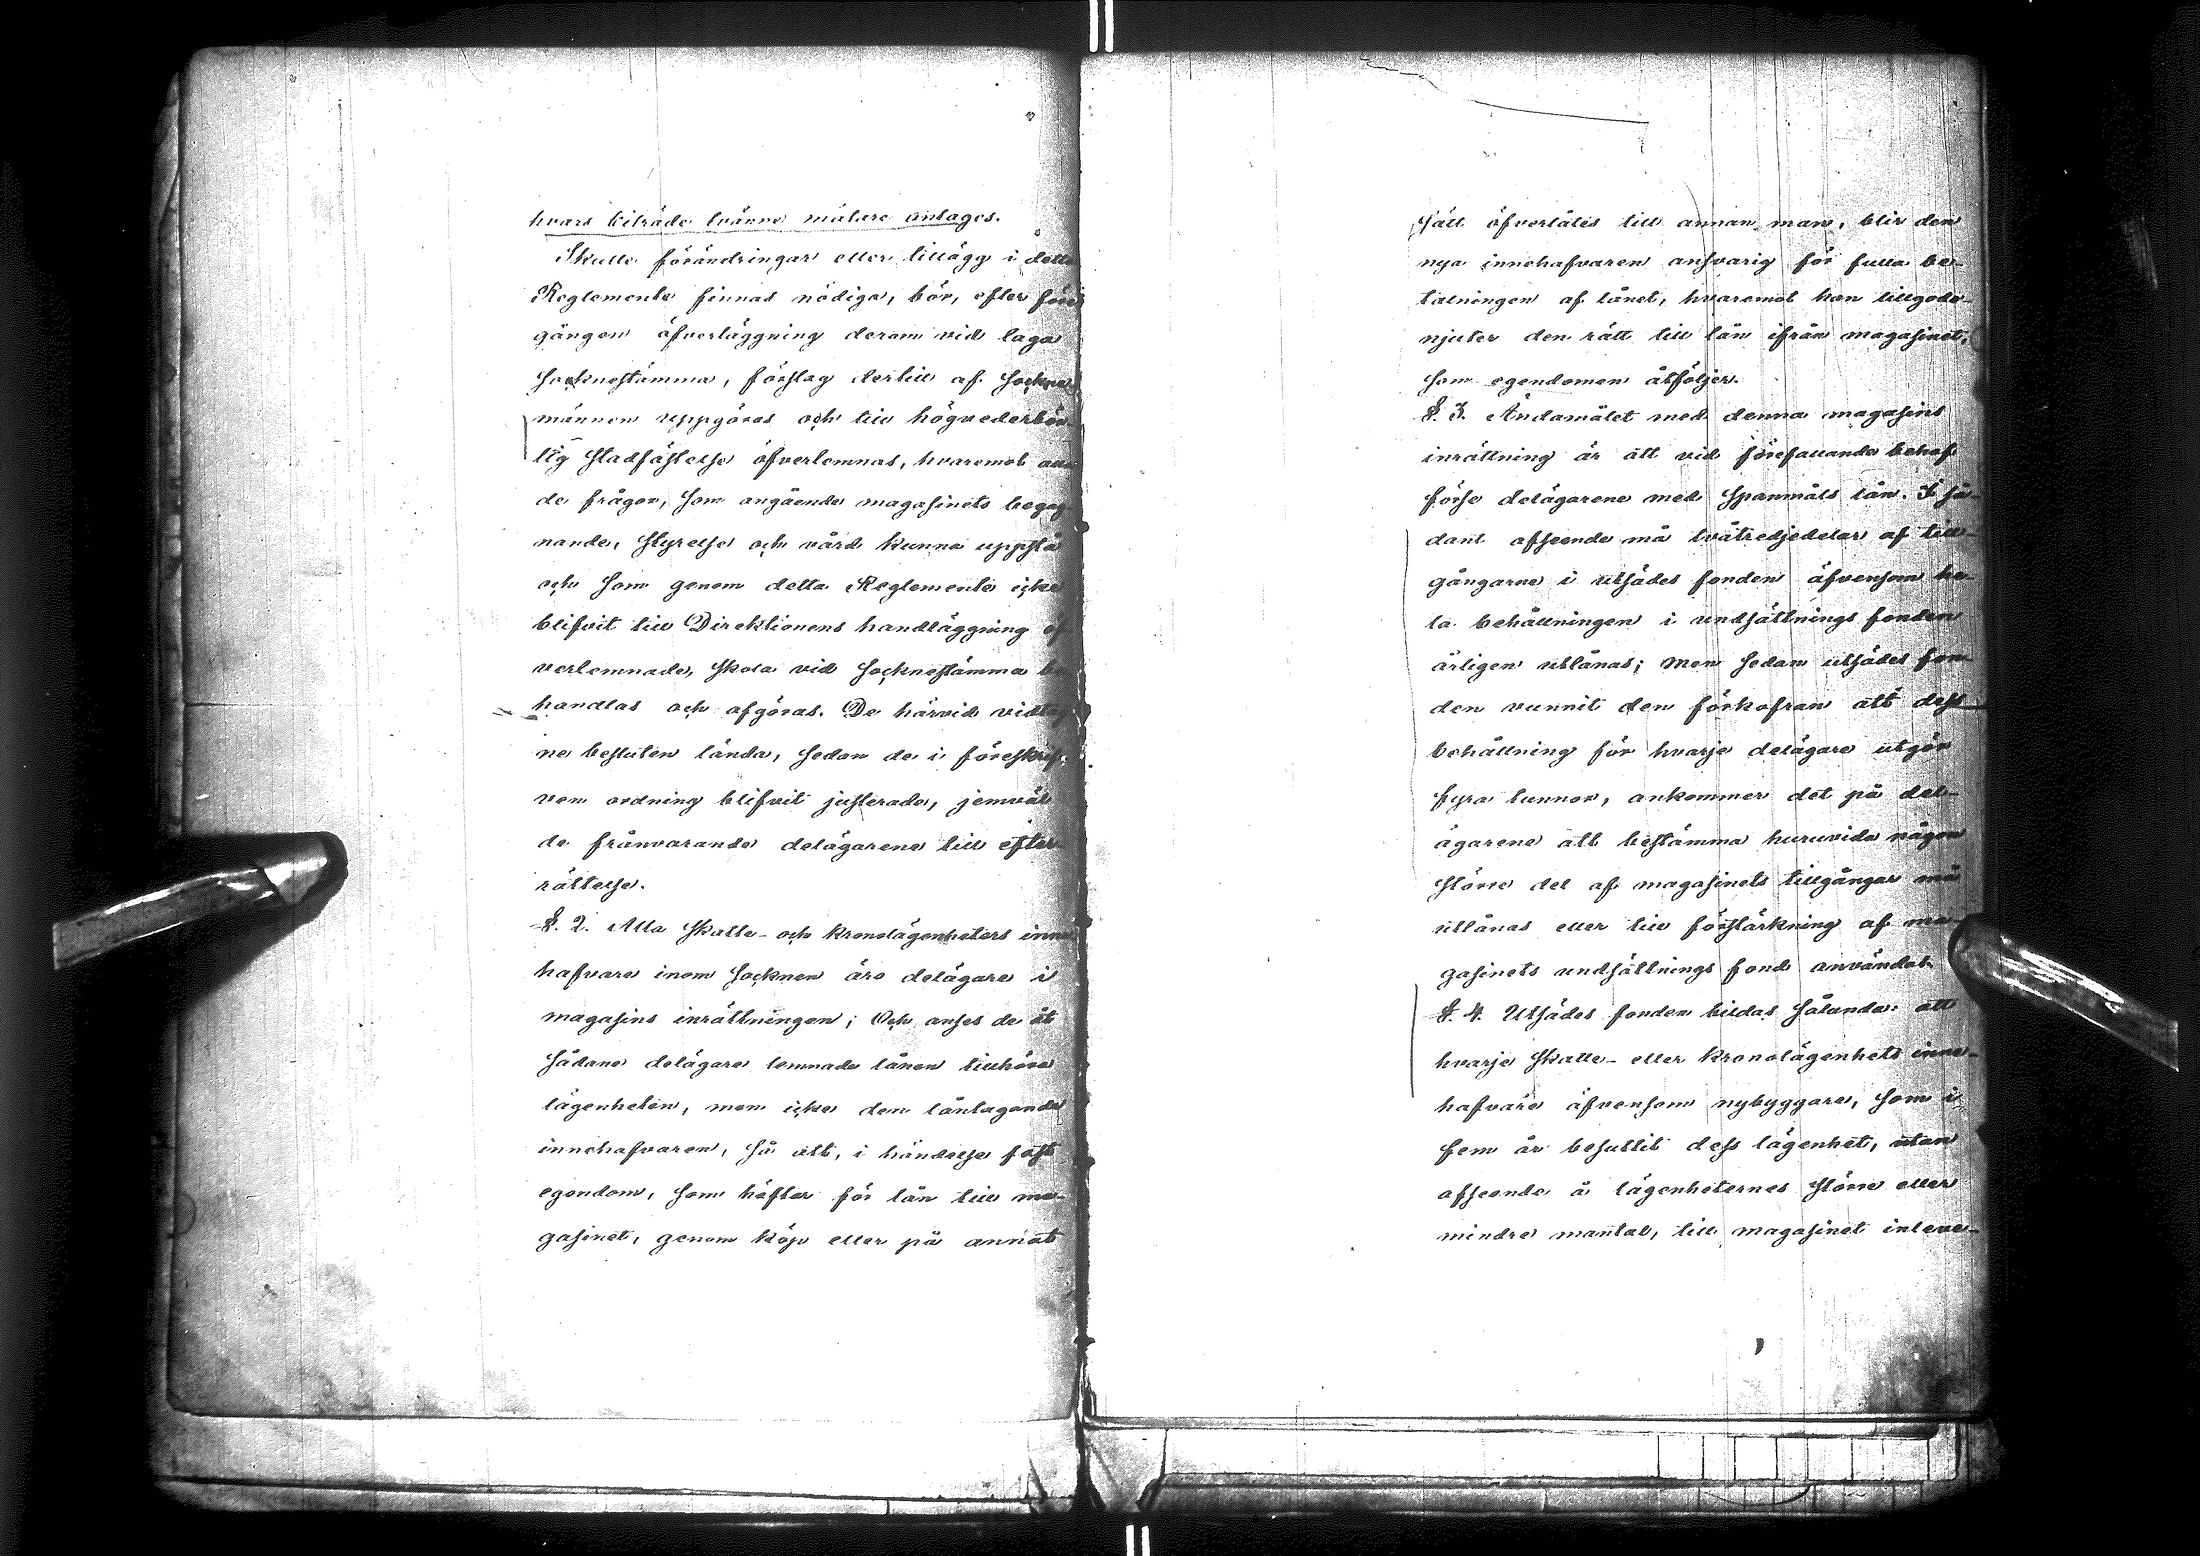 hvars biträde tvänne mätare antages.
Skulle förändringar eller tillägg i detta
Reglemente finnas nödiga, bör, efter före
gången öfverläggning derom vid laga
Socknestämma, förslag dertill af Sockne
männen uppgöras och till högvederbör
lig Stadfästelse öfverlemnas, hvaremot an
de frågor, Som angående magasinets begag
nande, Styrelse och vård kunna uppstå
och Som genom detta Reglemente icke
blifvit till Direktionens handläggning öf
verlemnade, Skola vid Socknestämma be
handlas och afgöras. De härvid vidtag
ne besluten lända, Sedan de i föreskrif-
ven ordning blifvit justerade, jemväl
de frånvarande delägarene till efter-
rättelse.
§. 2. Alla Skatte- och kronolägenheters inne
hafvare inom Socknen äro delägare i
magasins inrättningen; Och anses de åt
Sådane delägare lemnade lånen tillhöra
lägenheten, men icke den låntagande
innehafvaren, Så att, i händelse fast
egendom, Som häftar för lån till ma-
gasinet, genom köp eller på annat
Sätt öfverlåtes till annan man, blir den
nya innehafvaren ansvarig för fulla be-
talningen af lånet, hvaremot han tillgodo-
njuter den rätt till lån ifrån magasinet,
Som egendomen åtföljer.
§. 3. Ändamålet med denna magasins
inrättning är att vid förefallande behof
förse delägarene med Spanmåls lån. I Så-
dant afseende må tvåtredjedelar af till-
gångarne i utsädes fonden äfvensom he-
la behållningen i undsättnings fonden
årligen utlånas; men Sedan utsädes fon-
den vunnit den förkofran att dess
behållning för hvarje delägare utgör
fyra tunnor, ankommer det på del-
ägarene att bestämma huruvida någon
Större del af magasinets tillgångar må
utlånas eller till förstärkning af ma-
gasinets undsättnings fond användas.
§. 4. Utsädes fonden bildas Sålunda: att
hvarje Skatte- eller kronolägenhets inne-
hafvare äfvensom nybyggare, Som i
fem år besuttit dess lägenhet, utan
afseende å lägenheternes Större eller
mindre mantal, till magasinet inleve-